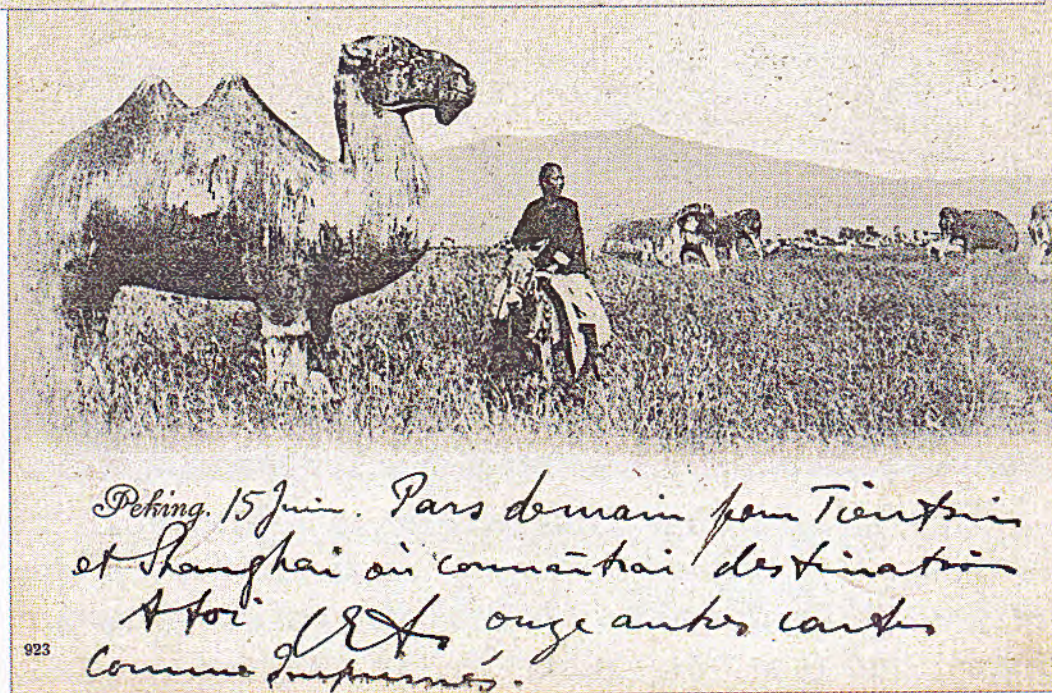 Peking. 15 Juin. Pars demain pour Tientsin
et Shanghai où connaîtrai destination
A toi onze autres cartes
923
comme Imprimés.